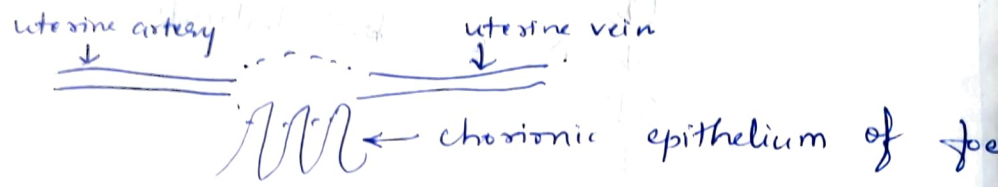 uterine artery
uterine vein
chorionic epithelium of foe